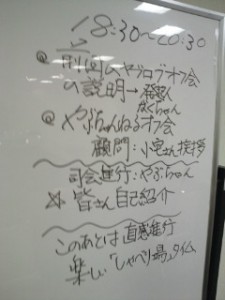 18:30〜20:30
@ 前回のヤブログオフ会
の説明→発起人
ぼくちゃん
@ やぶちゃんねるオフ会
顧問:小宅さん挨拶
司会進行:やぶちゃん
※ 皆さん自己紹介
このあとは直感進行
楽しい「しゃべり場」タイム